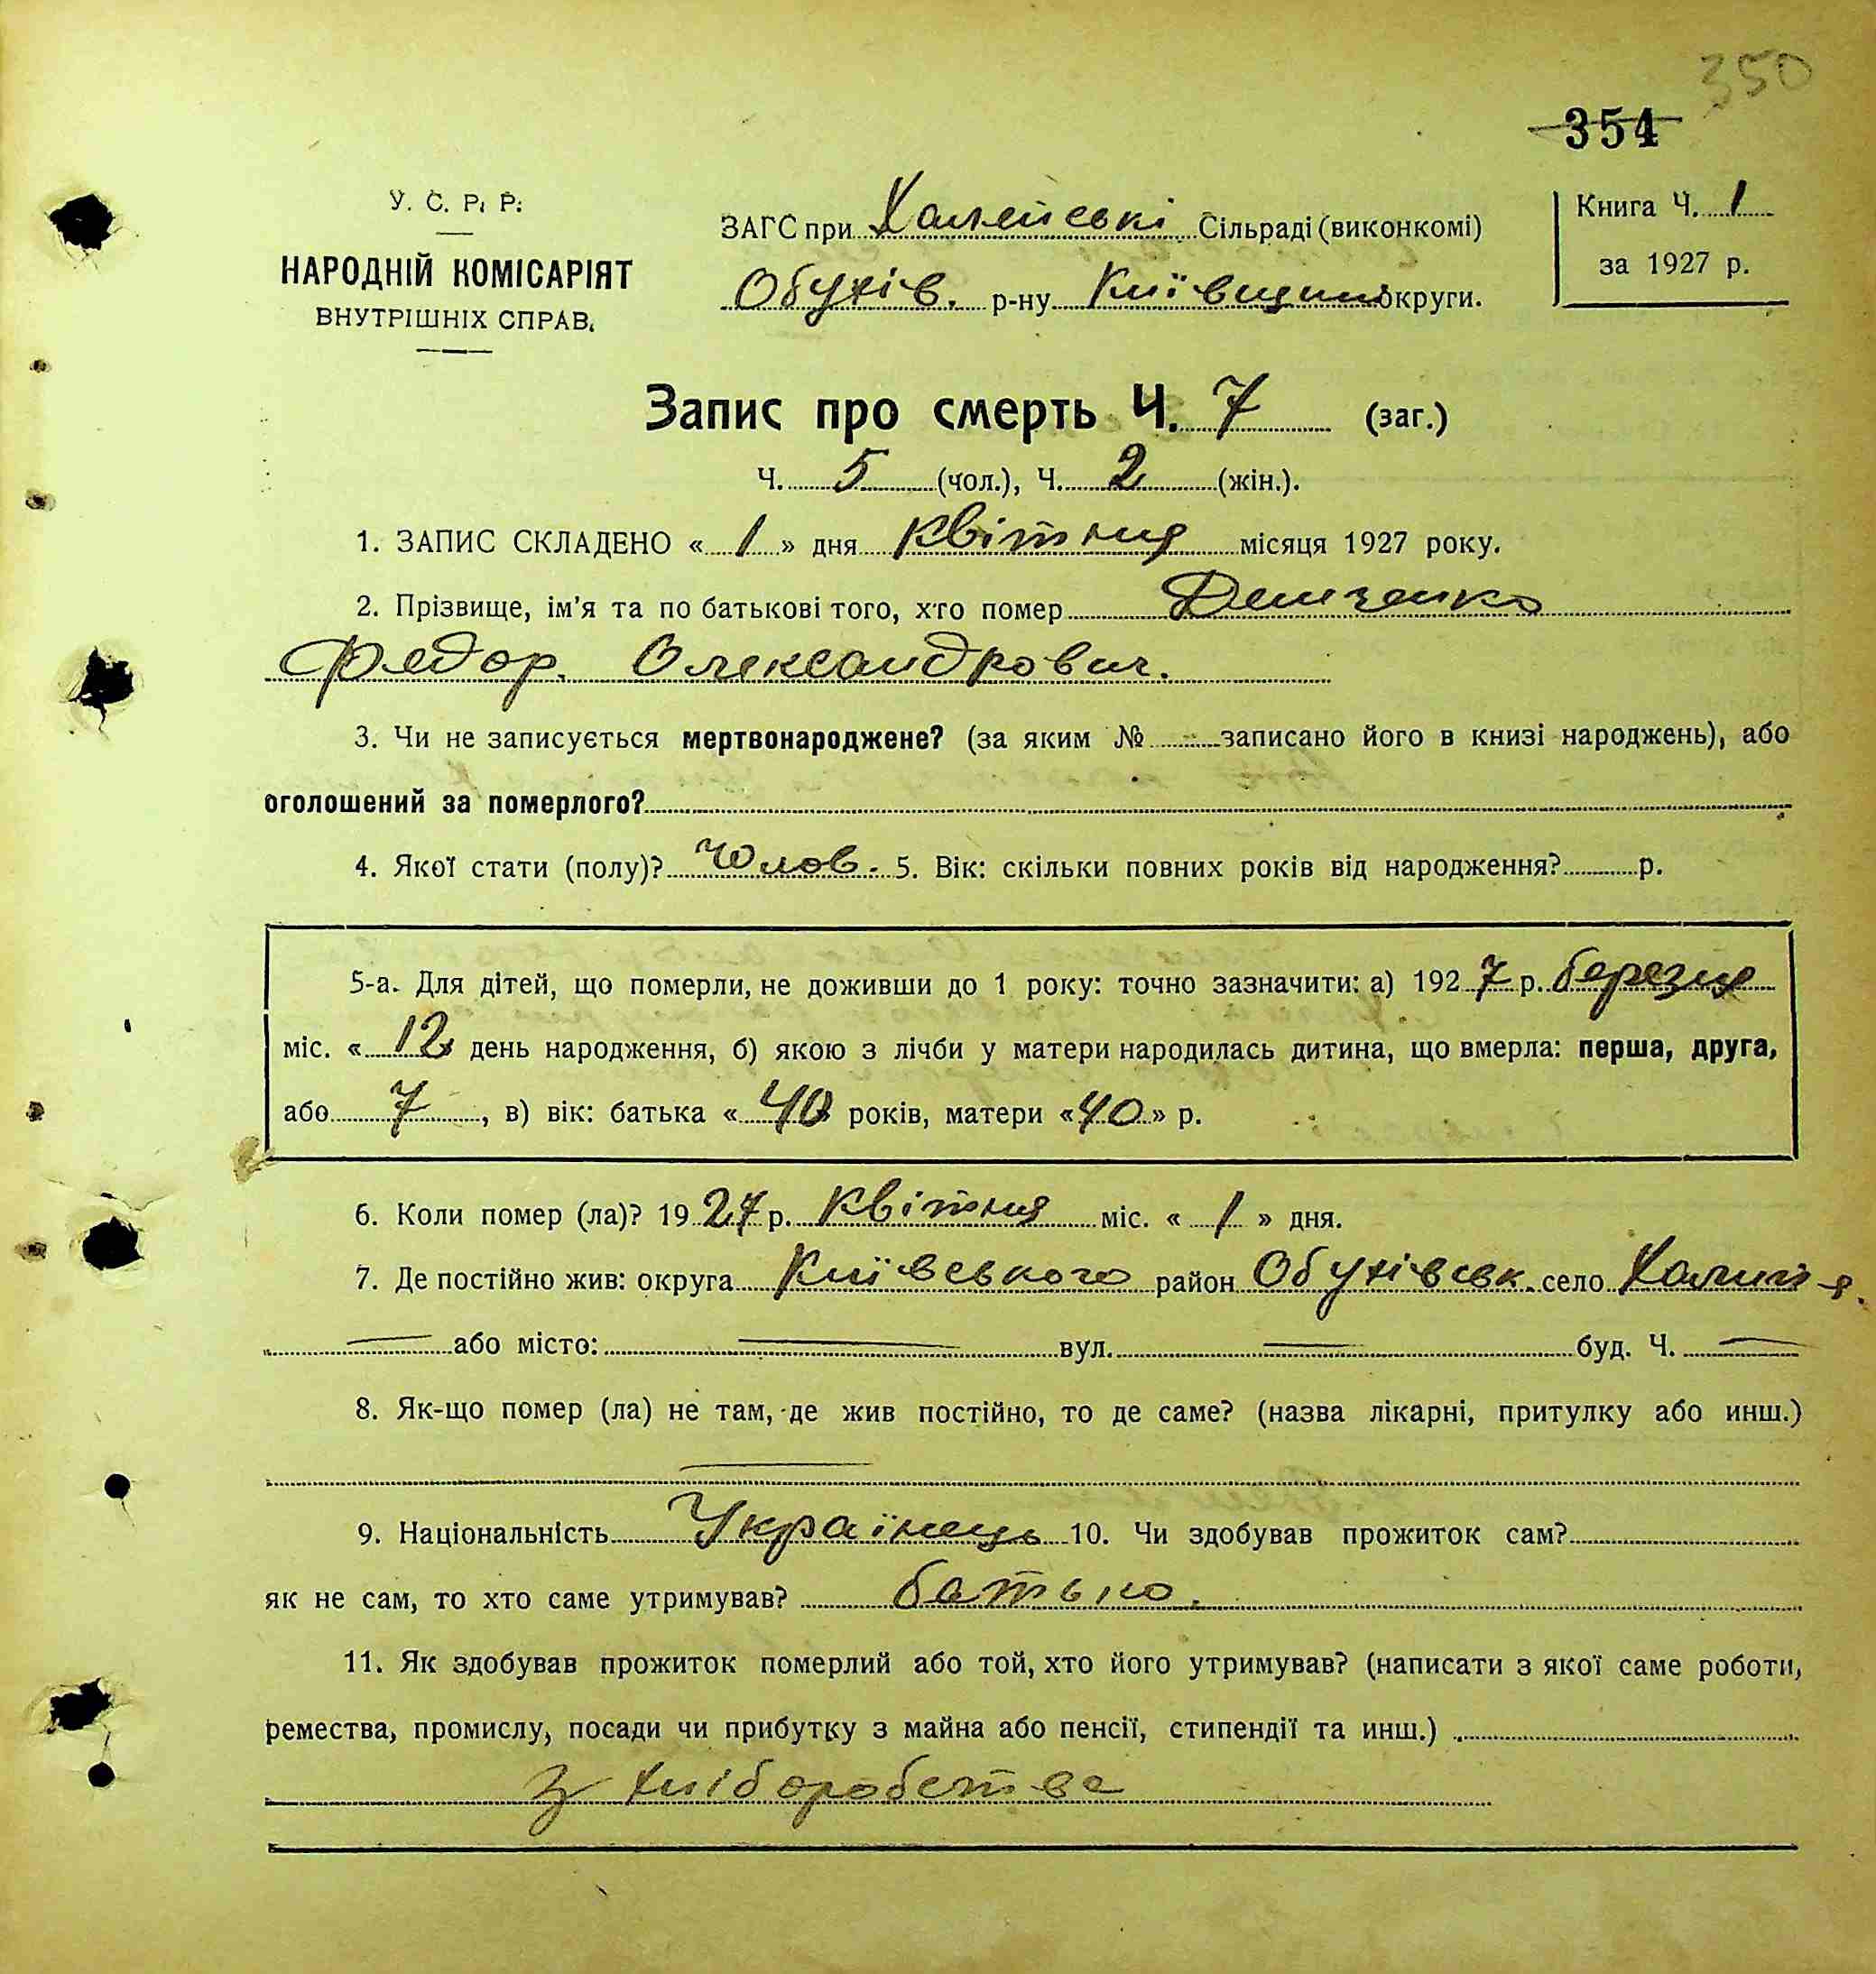 350
354
У. С. Р. Р.
НАРОДНІЙ КОМІСАРІЯТ
ВНУТРІШНІХ СПРАВ.
ЗАГС при Халепські Сільраді (виконкомі)
Обухів. р-ну Київщини округи.
Книга Ч. 1
за 1927 р.
Запис про смерть Ч. 7 (заг.)
Ч. 5 (чол.), Ч. 2 (жін.).
1. ЗАПИС СКЛАДЕНО « 1 » дня Квітня місяця 1927 року.
2. Прізвище, ім'я та по батькові того, хто помер
Федор. Олександрович.
3. Чи не записується мертвонароджене? (за яким № записано його в книзі народжень), або
оголошений за померлого?
4. Якої стати (полу)? Чолов. 5. Вік: скільки повних років від народження? р.
5-а. Для дітей, що померли, не доживши до 1 року: точно зазначити: а) 1927 р. березня
міс. « 12 » день народження, б) якою з лічби у матери народилась дитина, що вмерла: перша, друга,
або 7, в) вік: батька « 40 » років, матери « 40 » р.
6. Коли помер (ла)? 1927 р. Квітня міс. « 1 » дня.
7. Де постійно жив: округа Київського район Обухівськ. село
або місто: вул. буд. Ч.
8. Як-що помер (ла) не там, де жив постійно, то де саме? (назва лікарні, притулку або инш.)
9. Національність Українець 10. Чи здобував прожиток сам?
як не сам, то хто саме утримував? батько.
11. Як здобував прожиток померлий або той, хто його утримував? (написати з якої саме роботи,
ремества, промислу, посади чи прибутку з майна або пенсії, стипендії та инш.)
З хліборобства